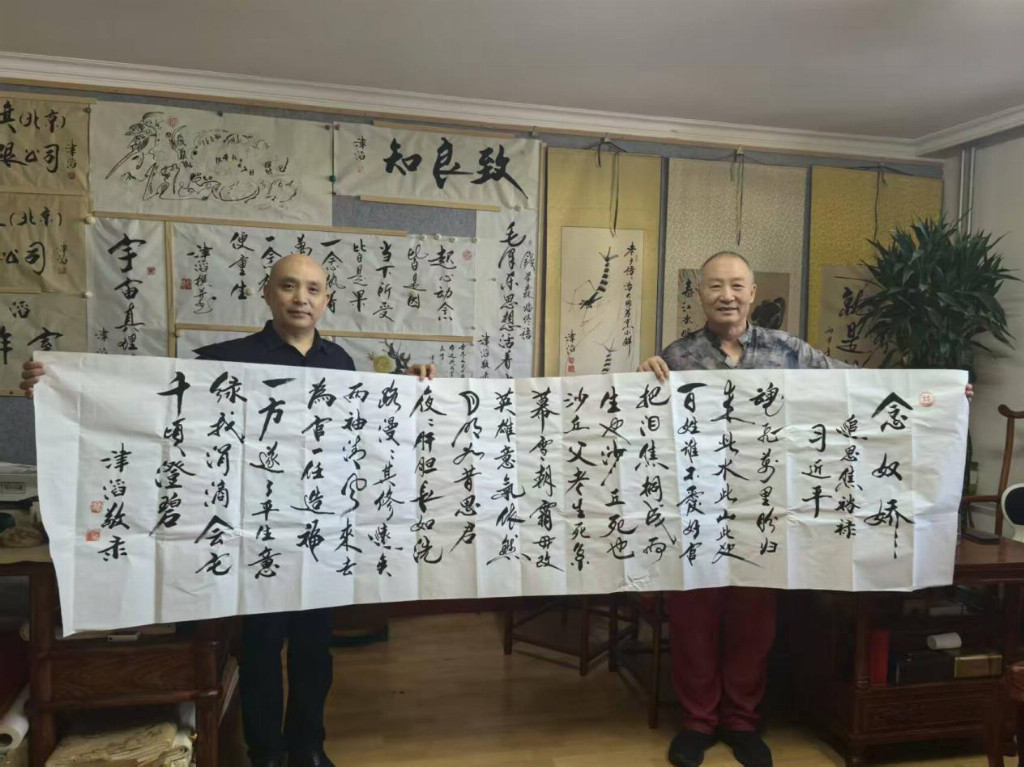 (北京)
限公司
津滔
(北京)
公司
津滔
致良知
津滔
宇宙真理
津滔
起心动念
皆是因
当下所受
皆是果
一念
万
一念
便重生
毛泽东思想活着
津滔
津滔
念奴娇
追思焦裕禄
习近平
魂飞万里盼归
来此水此山此地
百姓谁不爱好官
把泪焦桐成雨
生也沙丘死也
沙丘父老生死系
暮雪朝霜毋改
英雄意氣依然
月明如昔思君
夜〻肝胆长如洗
路漫〻其修远矣
两袖清风来去
为官一任造福
一方遂了平生意
绿我涓滴会它
千顷澄碧
津滔敬录